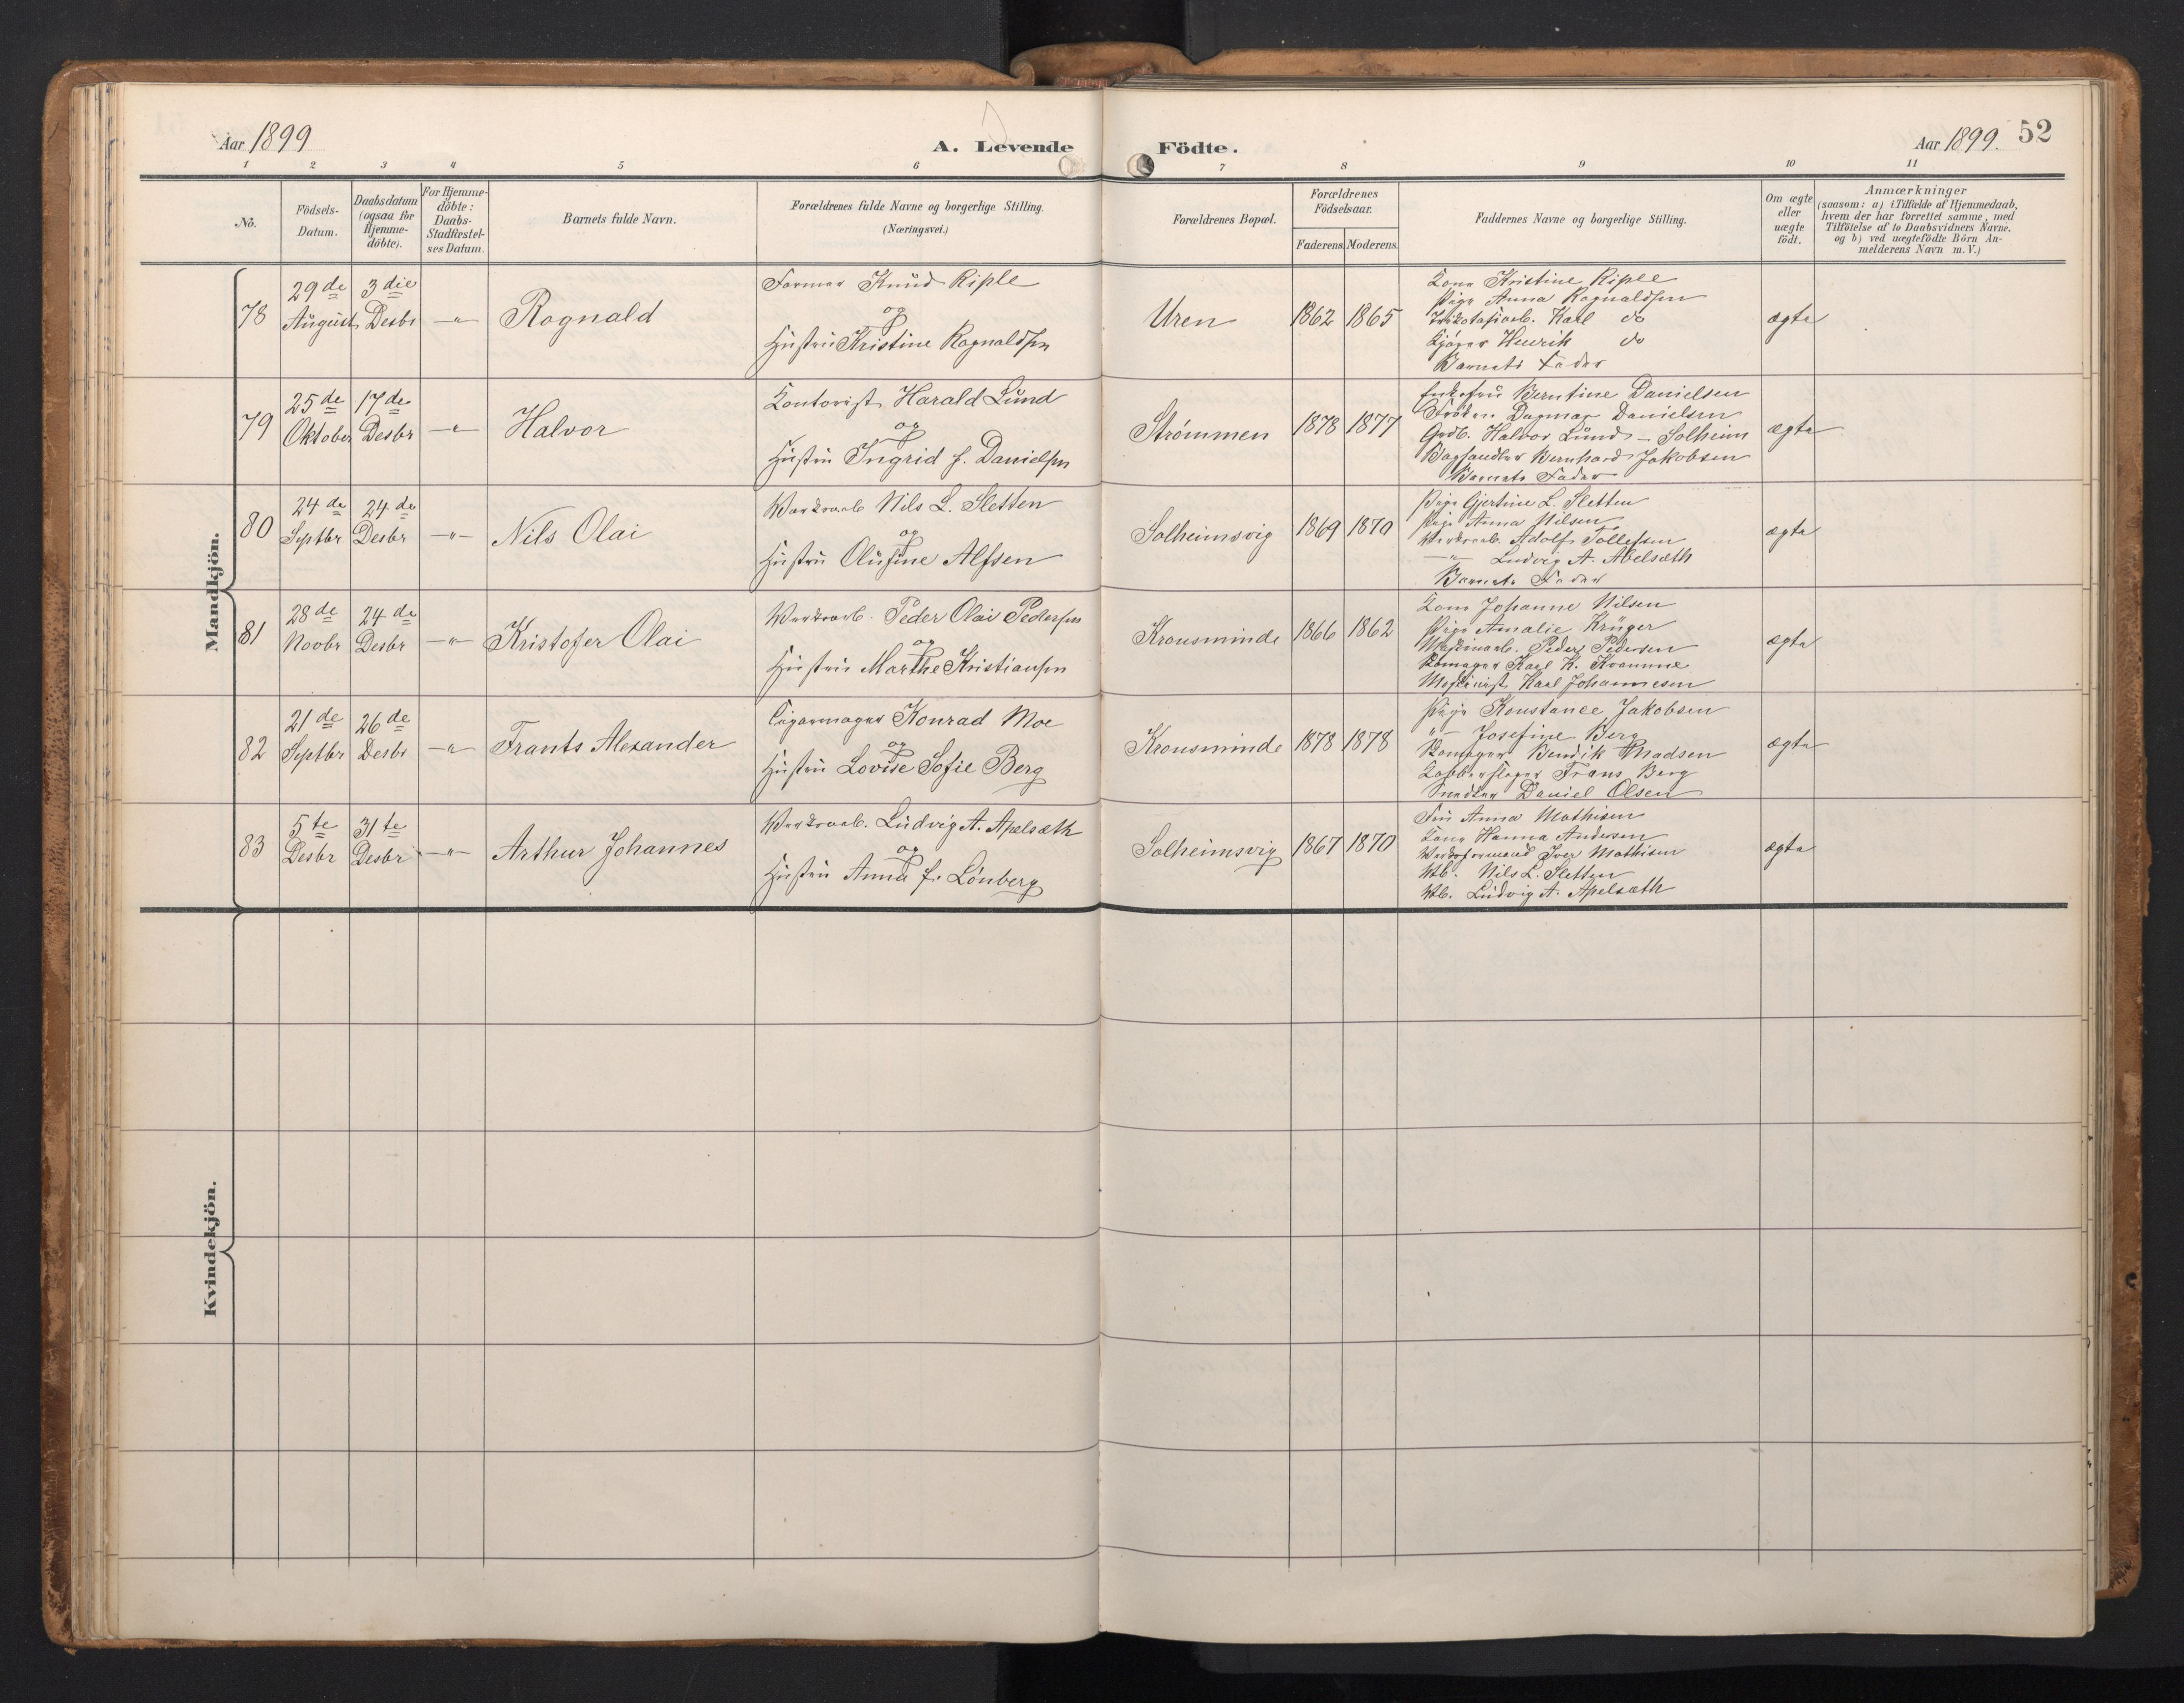 Aar 1899
A. Levende
Födte.
Aar 1899. 52
1 2 3 4 5 6 7 8 9 10 11
No.
Födsels-Datum.
Daabsdatum (ogsaa for Hjemme-döbte).
For Hjemme-döbte: Daabs-Stadfæstel-ses Datum.
Barnets fulde Navn.
Forældrenes fulde Navne og borgerlige Stilling.
(Næringsvei.)
Forældrenes Bopæl.
Forældrenes Födselsaar.
Faderens. Moderens.
Faddernes Navne og borgerlige Stilling.
Om ægte eller uægte födt.
Anmærkninger
(saasom: a) i Tilfælde af Hjemmedaab,
hvem der har forrettet samme, med
Tilföielse af to Daabsvidners Navne.
og b) ved uægtefödte Börn An-
melderens Navn m. V.)
Mandkjön.
78
29de August
3die Desbr
—"—
Rognald
Former Knud Riple
og
Hustru Kristine Rognaldsen
Uren
1862 1865
Kone Kristine Riple
Pige Anna Rognaldsen
Trikotagearb. Karl do
Gjøger Henrik do
Barnets Fader
ægte
79
25de Oktober
17de Desbr
—"—
Halvor
Kontorist Harald Lund
og
Hustru Ingrid f. Danielsen
Strømmen
1878 1877
Enkefru Berntine Danielsen
Frøken Dagmar Danielsen
Grdb. Halvor Lund – Solheim
Boghandler Bernhard Jakobsen
Barnets Fader
ægte
80
24de Septbr
24de Desbr
—"—
Nils Olai
Værksarb Nils L. Sletten
og
Hustru Olufine Alfsen
Solheimsvig
1869 1870
Pige Gjertine L. Sletten
Pige Anna Nilsen
Værksarb. Adolf Tollefsen
—"— Ludvig A. Abelsæth
Barnets Fader
ægte
81
28de Novbr
24de Desbr
—"—
Kristofer Olai
Værksarb. Peder Olai Pedersen
og
Hustru Marthe Kristiansen
Kronsminde
1866 1862
Kone Johanne Nilsen
Pige Amalie Krüger
Værksarb. Peder Pedersen
Skomager Karl K. Kvamme
Maskinist Karl Johannesen
ægte
82
21de Septbr
26de Desbr
—"—
Frants Alexander
Cigarmager Konrad Moe
og
Hustru Lovise Sofie Berg
Kronsminde
1878 1878
Pige Konstance Jakobsen
"— Josefine Berg
Skomager Bendik Madsen
Kobberslager Frans Berg
Snedker Daniel Olsen
ægte
83
5te Desbr
31te Desbr
—"—
Arthur Johannes
Værksarb. Ludvig A. Apelsæth
og
Hustru Anna f. Lönberg
Solheimsvig
1867 1870
Fru Anna Mathisen
Kone Hanna Andersen
Værksformand Iver Mathisen
Vb. Nils L. Sletten
Vb. Ludvig A. Apelsæth
ægte
Kvindekjön.